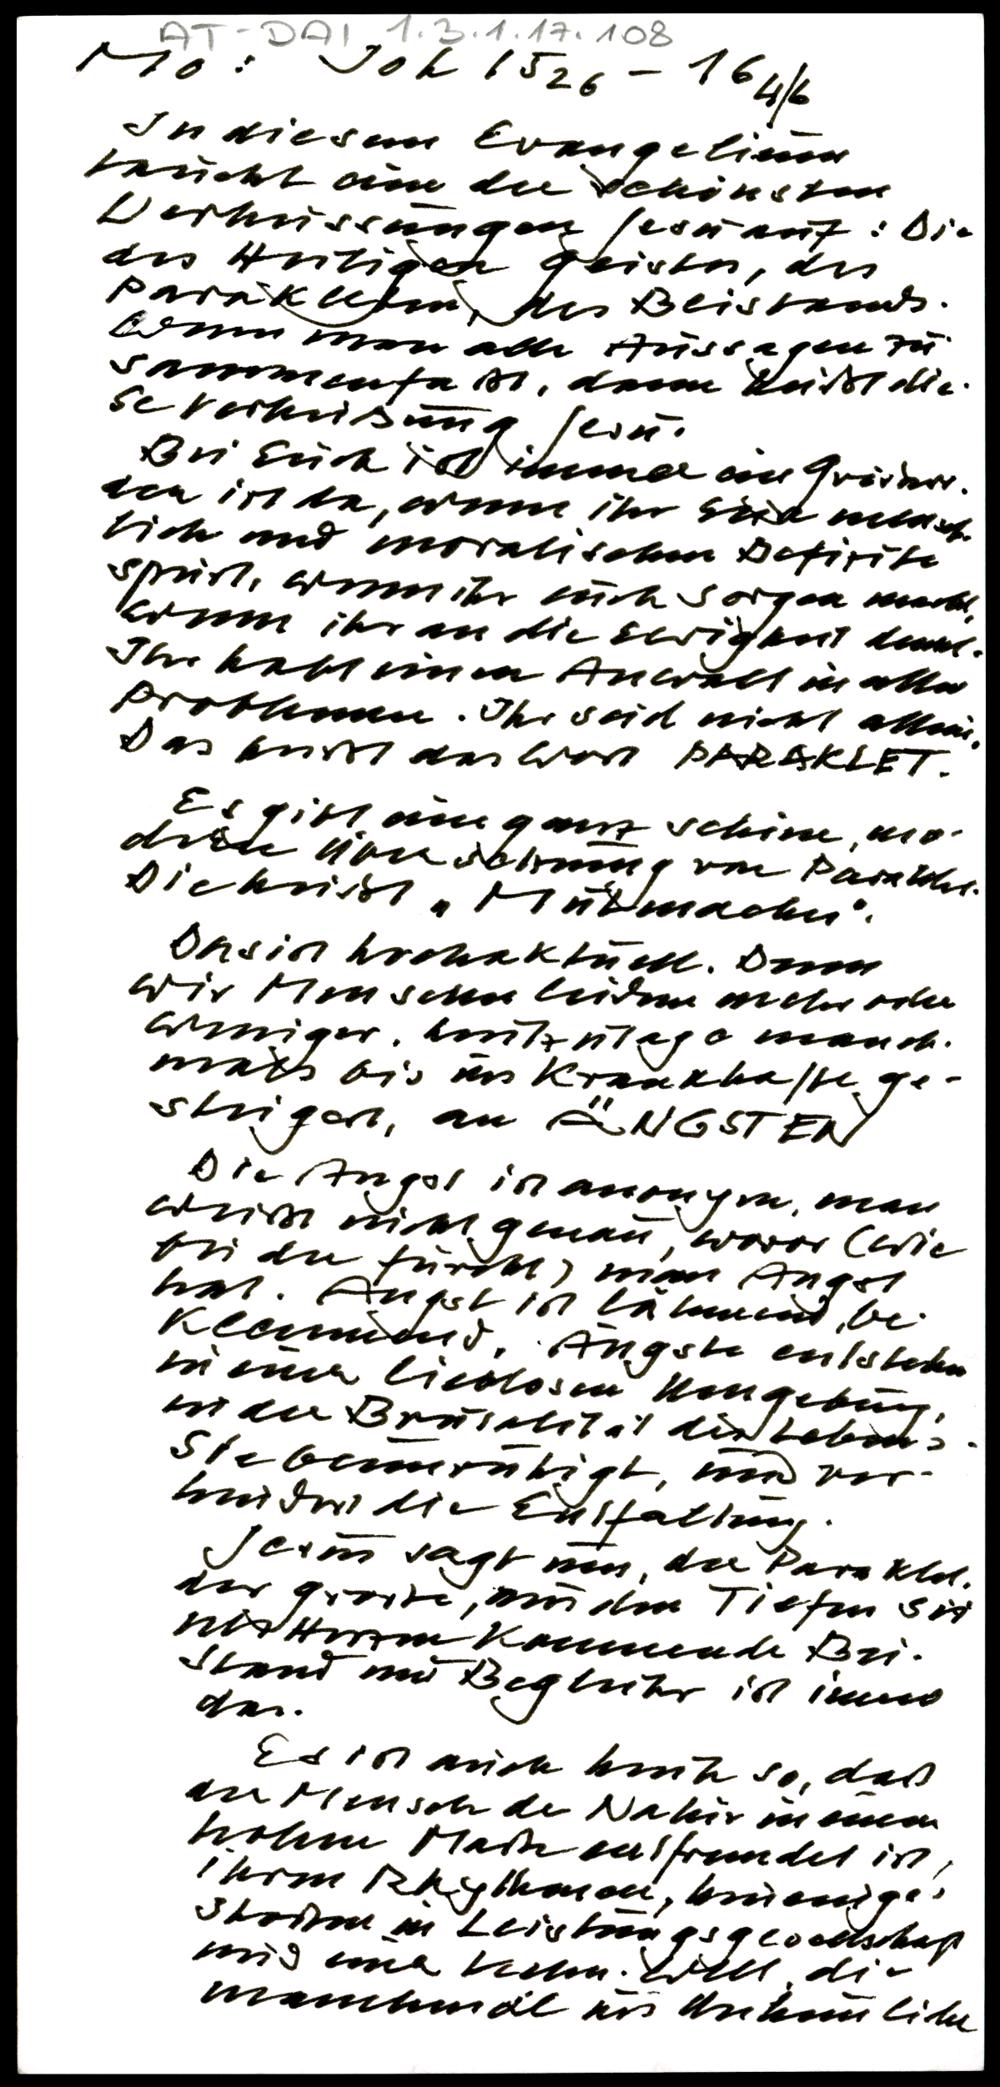 AT-DAI 1.3.1.17.108
Mo: Joh 15 26 - 16 4/b
In diesem Evangelium
taucht eine der schönsten
Verheissungen Jesu auf: Die
des Heiligen Geistes, des
Parakleten, des Beistands.
Wenn man alle Aussagen zu
sammenfaßt, dann heißt die-
se Verheißung Jesu.
Bei Euch ist immer ein
der ist da, wenn ihr Eure mensch-
lich und moralischen Defizite
spürt, wenn ihr euch Sorgen macht,
wenn ihr an die Ewigkeit denkt.
Ihr habt einen Anwalt in allen
Problemen. Ihr seid nicht allein.
Das heißt das Wort PARAKLET.
Es gibt eine ganz schöne, mo-
derne Übersetzung von Paraklet.
Die heißt "Mutmacher".
Das ist hochaktuell. Denn
wir Menschen leiden mehr oder
weniger, heutzutage manch-
mals bis ins Krankhafte ge-
steigert, an ÄNGSTEN
Die Angst ist anonym, man
weiß nicht genau, wovor (wie
bei der Furcht) man Angst
hat. Angst ist lähmend, be-
klemmend. Ängste entstehen
in einer lieblosen Umgebung,
in der Brutalität des Lebens.
Sie beunruhigt, und ver-
hindert die Entfaltung.
Jesus sagt nun, der Paraklet,
der grosse, aus den Tiefen
Herzen kommende Bei-
stand und Begleiter ist immer
da.
Es ist auch heute so, daß
der Mensch der Natur in einem
hohen Maße entfremdet ist,
ihrem Rhythmen, hineinge-
stoßen in Leistungsgesellschaft
und eine Welt, die
manchmal ins Unheimliche